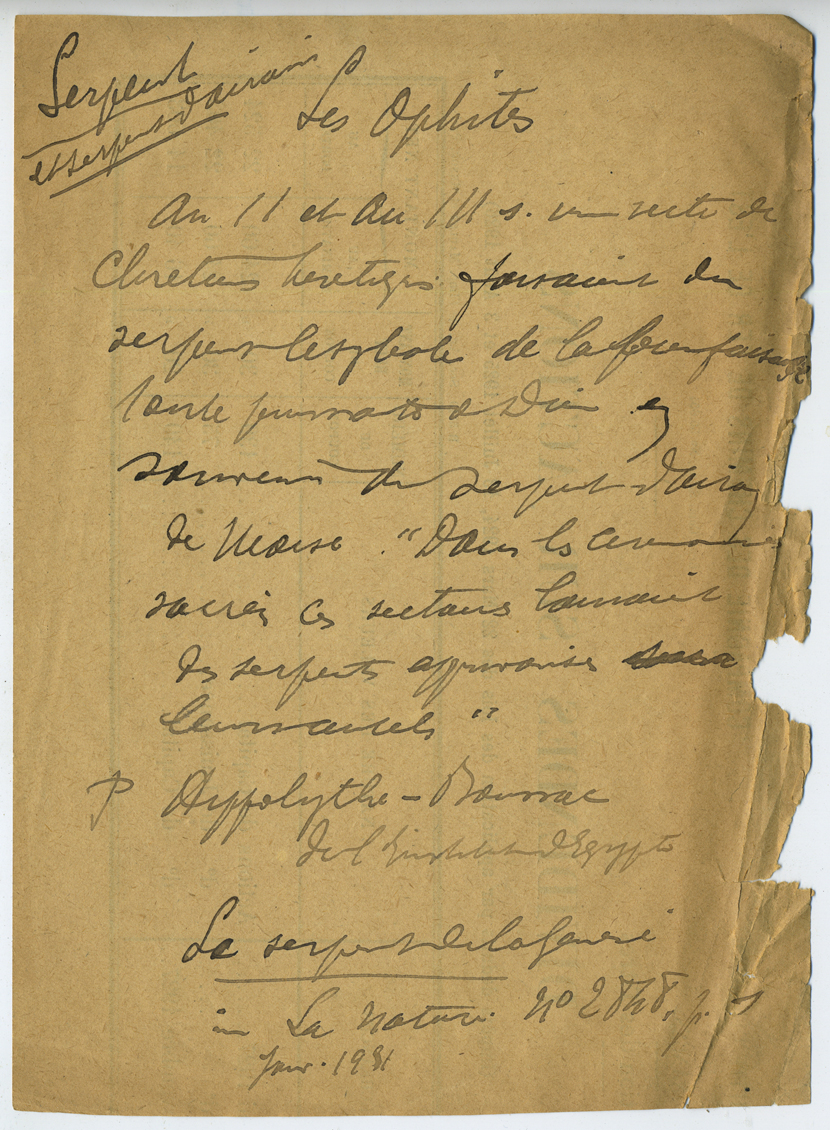 Serpent
et serpent d'airain
Les Ophites
Au II et au III s. une secte de
Chretiens heretiqes faisaient du
serpent le sybole de la
toute puissate d Dieu en
souvenir du serpent d'airain
de Moise. "Dans les ceremonies
sacrées ces sectaires laissaient
des serpents apprivoisés
leurs autels"
P Hippolythe-Boussac
de l'Institut d'Egypte
Le serpent de la Genese
in La Nature. No 2848, p.
Janv. 1931